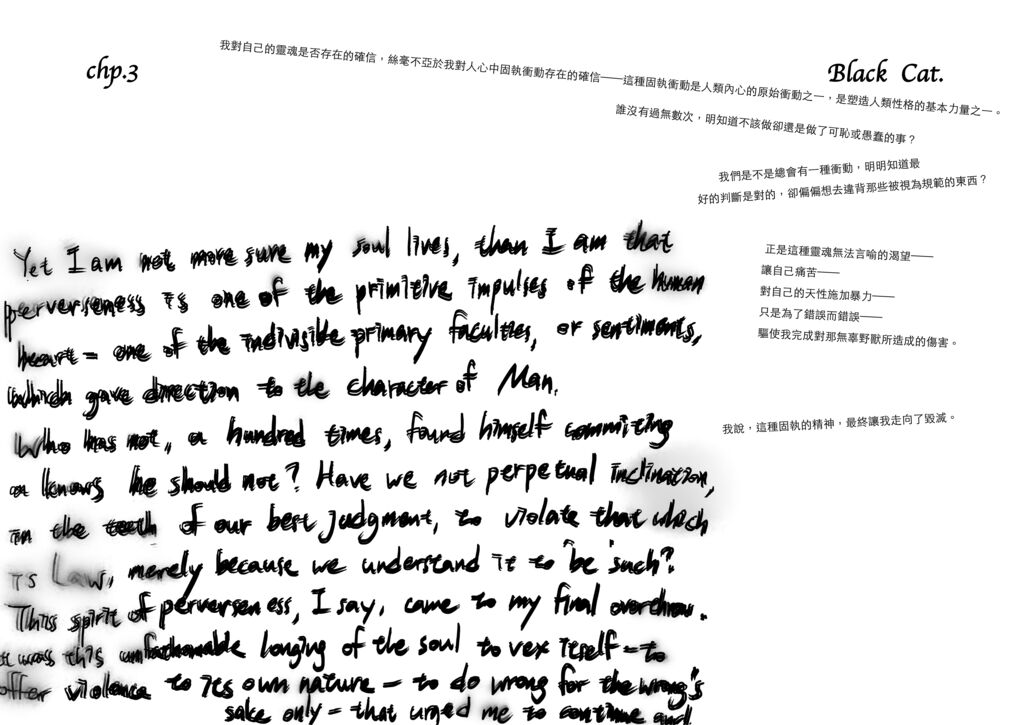 chp.3
Black Cat.
我對自己的靈魂是否存在的確信，絲毫不亞於我對人心中固執衝動存在的確信——這種固執衝動是人類內心的原始衝動之一，是塑造人類性格的基本力量之一。
誰沒有過無數次，明知道不該做卻還是做了可恥或愚蠢的事？
我們是不是總會有一種衝動，明明知道最
好的判斷是對的，卻偏偏想去違背那些被視為規範的東西？
正是這種靈魂無法言喻的渴望——
讓自己痛苦——
對自己的天性施加暴力——
只是為了錯誤而錯誤——
驅使我完成對那無辜野獸所造成的傷害。
我說，這種固執的精神，最終讓我走向了毀滅。
Yet I am not more sure my soul lives, than I am that
perverseness is one of the primitive impulses of the human
heart - one of the indivisible primary faculties, or sentiments,
which gave direction to the character of Man.
Who has not, a hundred times, found himself commiting
a knows he should not? Have we not perpetual inclination,
in the teeth of our best judgment, to violate that which
is Law, merely because we understand it to be such?
This spirit of perverseness, I say, came to my final overthrow.
it was this unfathomable longing of the soul to vex itself - to
offer violence to its own nature - to do wrong for the wrong's
sake only - that urged me to continue and